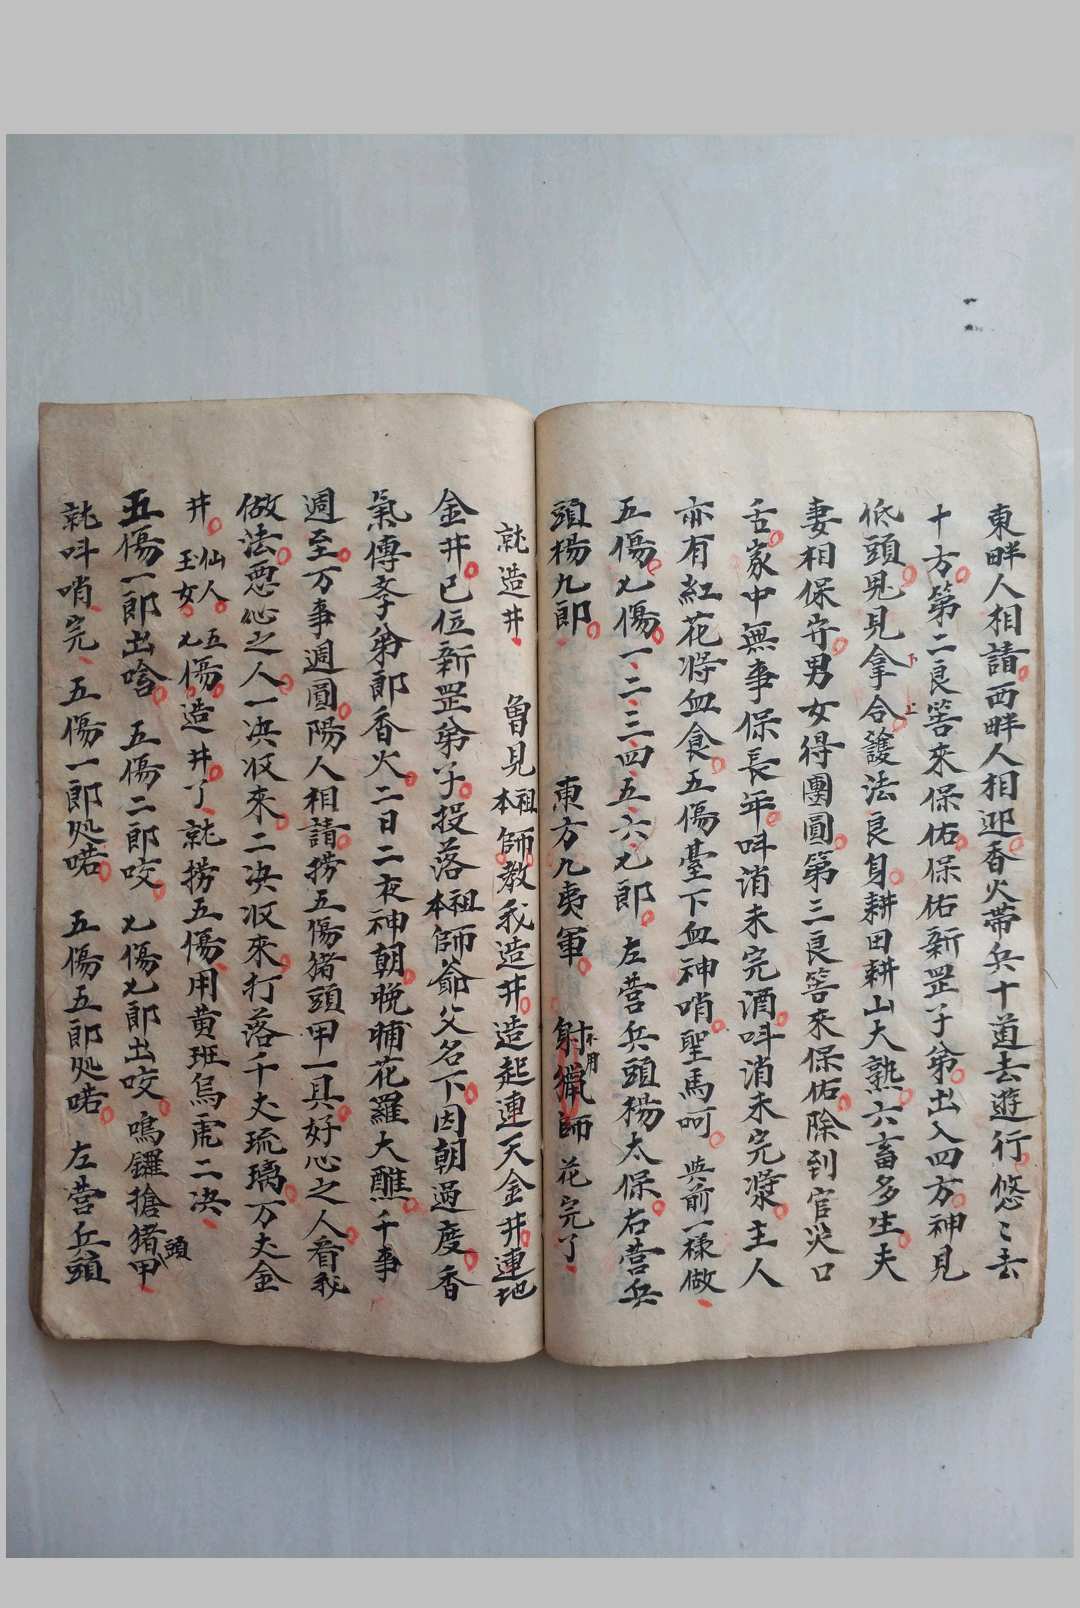 東畔人相請西畔人相迎香火帶兵十道去遊行悠〻去
十方第二良筶來保佑保佑新罡子弟出入四方神見
低頭鬼見拿合護法良身耕田耕山大熟六畜多生夫
下上
妻相保守男女得團圓第三良筶來保佑除到官災口
舌家中無事保長年呌消未完酒呌消未完漿主人
亦有紅花將血食五傷臺下血神哨聖馬呵 與前一樣做
五傷七傷一二三四五六七郎 左營兵頭楊太保右營兵
頭楊九郎 東方九夷軍 射獵師 花完了
不用
就造井 魯見祖本師教我造井造起連天金井連地
金井已位新罡弟子投落祖本師爺父名下因朝過度香
氣傳孝弟郎香火二日二夜神朝晚晡花羅大醮千事
週至万事週圓陽人相請撈五傷猪頭甲一具好心之人看我
做法惡心之人一决収來二决収來打落千丈琉璃万丈金
井 仙人玉女五七傷造井了就撈五傷用黄班烏虎二决
五傷一郎出啥 五傷二郎咬 七傷七郎出咬鳴鑼搶猪頭甲
就呌哨完 五傷一郎処喏 五傷五郎処喏 左營兵頭